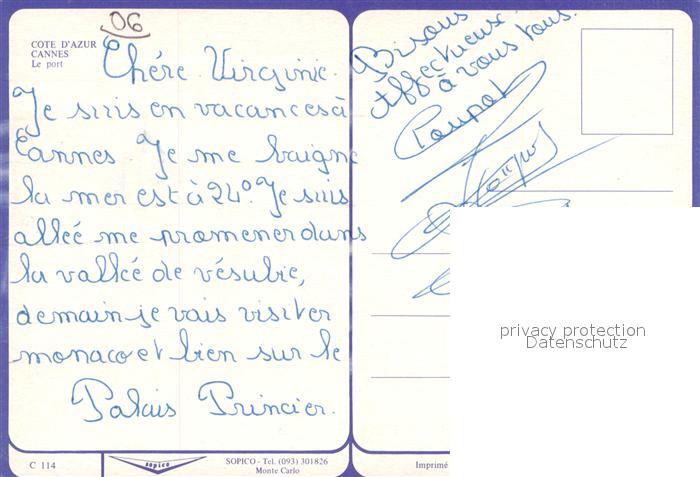 06
COTE D'AZUR
CANNES
Le port
Chére Virginie.
Je suis en vacances à
Cannes. Je me baigne
la mer est à 24°. Je suis
allée me promener dans
la vallée de vésubie,
demain je vais visiter
monaco et bien sur le
Palais Princier.
Bisous
Affectueux
à vous tous.
privacy protection
Datenschutz
C 114
sopico
SOPICO - Tel. (093) 301826
Monte Carlo
Imprimé